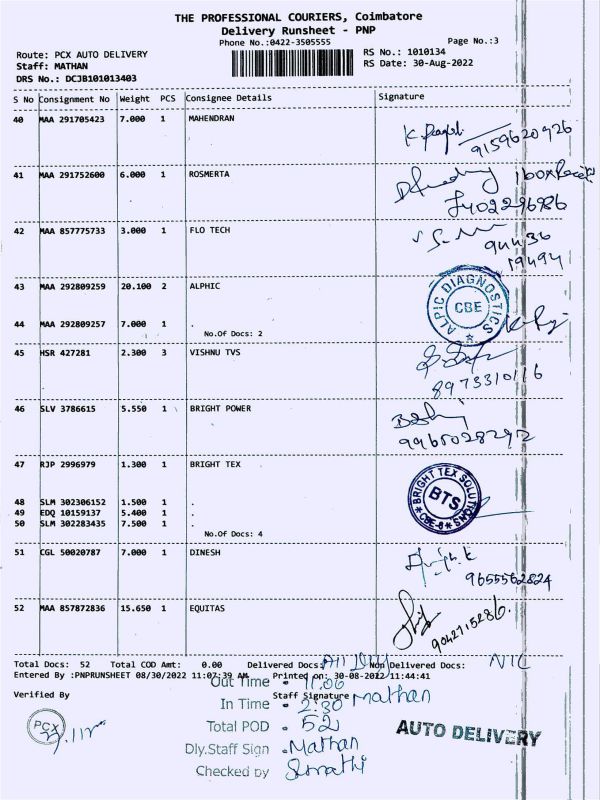 THE PROFESSIONAL COURIERS, Coimbatore
Delivery Runsheet - PNP
Phone No.:0422-3505555 Page No.:3
Route: PCX AUTO DELIVERY RS No.: 1010134
Staff: MATHAN RS Date: 30-Aug-2022
DRS No.: DCJB101013403
S No Consignment No Weight PCS Consignee Details Signature
40 MAA 291705423 7.000 1 MAHENDRAN
9159620926
41 MAA 291752600 6.000 1 ROSMERTA
7402296986
42 MAA 857775733 3.000 1 FLO TECH
94436
19494
43 MAA 292809259 20.100 2 ALPHIC
ALPIC DIAGNOSTICS CBE
44 MAA 292809257 7.000 1 .
No.Of Docs: 2
45 HSR 427281 2.300 3 VISHNU TVS
8973310116
46 SLV 3786615 5.550 1 BRIGHT POWER
9965028292
47 RJP 2996979 1.300 1 BRIGHT TEX
BRIGHT TEX SOLUTIONS BTS CBE-6
48 SLM 302306152 1.500 1 .
49 EDQ 10159137 5.400 1 .
50 SLM 302283435 7.500 1 .
No.Of Docs: 4
51 CGL 50020787 7.000 1 DINESH
9655562824
52 MAA 857872836 15.650 1 EQUITAS
9042715286.
Total Docs: 52 Total COD Amt: 0.00 Delivered Docs: Non Delivered Docs: NIL
Entered By :PNPRUNSHEET 08/30/2022 11:07:39 AM Printed on: 30-08-2022 11:44:41
Out Time - 11.06
Verified By Staff Signature Mathan
In Time - 2:30
PCX
Total POD - 52
AUTO DELIVERY
Dly.Staff Sign - Mathan
Checked by